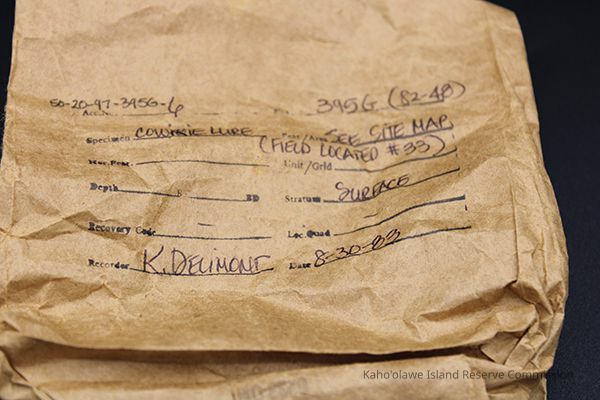 50-20-97-3956-6 395G (82-48)
Acc. No.
Specimen COWRIE LURE Feat/Area SEE SITE MAP
(FIELD LOCATED #33)
Hor. Feat. — Unit/Grid
Depth BD Stratum SURFACE
Recovery Code — Loc. Quad —
Recorder K. DELIMONT Date 8-30-83
Kaho'olawe Island Reserve Commission